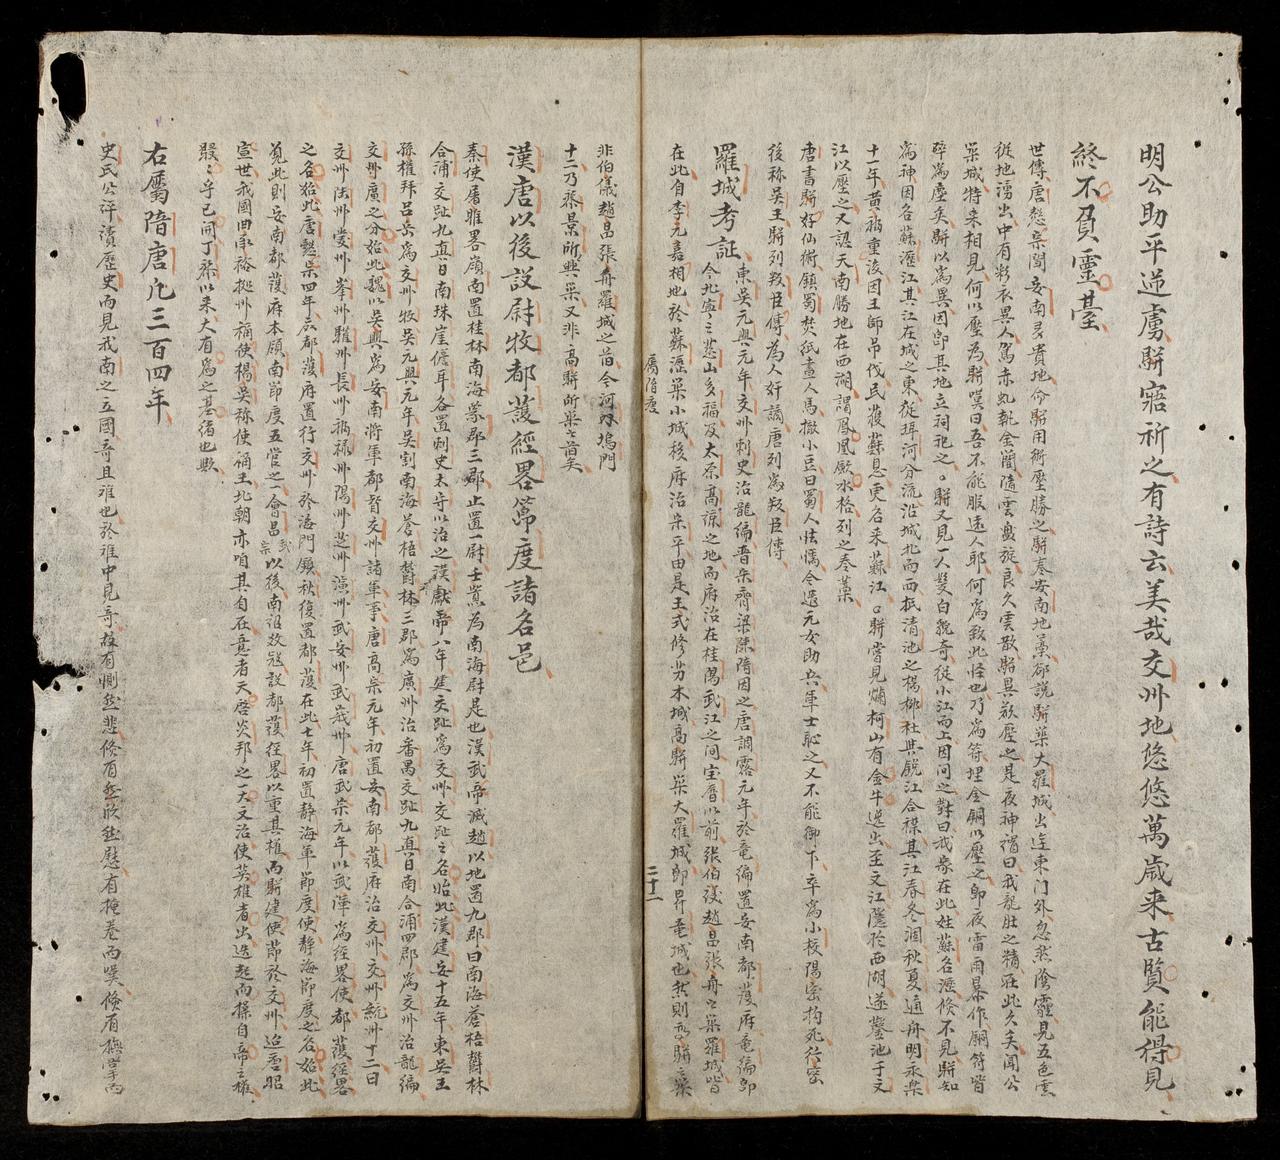 明公助平逆虜駢寤祈之有詩云美哉交州地悠悠萬歲来古賢能得見
終不負靈臺
世傳唐懿宗聞安南多貴地令駢用術壓勝之駢奏安南地藁郤說駢築大羅城出遊東门外忽然陰霾見五色雲
從地湧出中有彩衣異人駕赤虬執金簡隨雲盤旋良久雲散駢異欲壓之是夜神謂曰我龍肚之精在此久矣闻公
築城特来相見何以壓為駢嘆曰吾不能服逺人耶何為致此怪也乃為符埋金銅以壓之即夜雷雨暴作銅符皆
碎為塵矣駢以為異因即其地立祠祀之。駢又見一人髮白貌奇從小江而上因问之對曰我家在此姓蘇名瀝倏不見駢知
為神因名蘇瀝江其江在城之東從珥河分流沿城北而西抵清池之楊柳杜其銳江合襟其江春冬涸秋夏通舟明永楽
十一年黄福重浚因王師吊伐民獲蘇息更名来蘇江。駢嘗見爛柯山有金牛逸出至文江隱於西湖遂鑿池于文
江以壓之又認天南勝地在西湖謂鳳凰厭水格列之奏藁
唐書駢好仙術鎮蜀焚纸畫人馬撒小豆曰蜀人怯懦今遣元女助兵軍士恥之又不能御下卒為小校陽密拘死行密
後称吴王駢列叛臣傳為人奸謫唐列為叛臣傳
羅城考証 東吴元興元年交州刺史治龍編晋宋齊梁陳隋因之唐調露元年於竜編置安南都護府竜編即
今北寧之慈山多福及太原高諒之地而府治在桂陽武江之间宝曆以前張伯儀趙昌張舟之築羅城皆
在此自李元嘉相地於蘇瀝築小城移府治宋平由是王式修芳木城高駢築大羅城即昇竜城也然則高駢之築
二十一
非伯儀趙昌張舟羅城之旧今河内塢門
十二乃蔡景所興築又非高駢所築之旧矣
漢唐以後設尉牧都護經畧節度諸名邑
秦使屠雎畧嶺南置桂林南海蒙郡三郡止置一尉壬囂為南海尉是也漢武帝滅趙以地置九郡曰南海蒼梧欝林
合浦交趾九真日南珠崖儋耳各置刺史太守以治之漢獻帝八年建交趾為交州交趾之名昉此漢建安十五年東吴王
孫權拜吕岱為交州牧吴元興元年吴割南海蒼梧欝林三郡為廣州治番禺交趾九真日南合浦四郡為交州治龍編
交州廣之分始此魏以吴興為安南将軍都督交州諸軍事唐高宗元年初置安南都護府治交州交州統州十二曰
交州陆州愛州峯州驩州長州福禄州陽州芝州演州武安州武峩州唐武宗元年以武渾為經畧使都護經畧
之名始此唐懿宗四年□都護府置行交州於海門鎮秋復置都護在此七年初置静海軍節度使静海節度之名始此
覓此則安南都護府本領南節度五管之一會昌武宗以後南詔效冦設都護經畧以重其權而駢建使節於交州迨唐昭
宣世我國曲承裕拠州稱使楊吴称使稱王北朝亦咱其自在意者天啓炎邦之一大文治使英雄者出迭起而操自帝之權
駸〻乎已闻丁黎以来大有為之基绪也欤
右屬隋唐凢三百四年
史氏公洋瀆歷史而見我南之立國奇且难也於难中見奇故有惻然悲倐有然欣然慰有掩卷而嘆倐有撫掌而